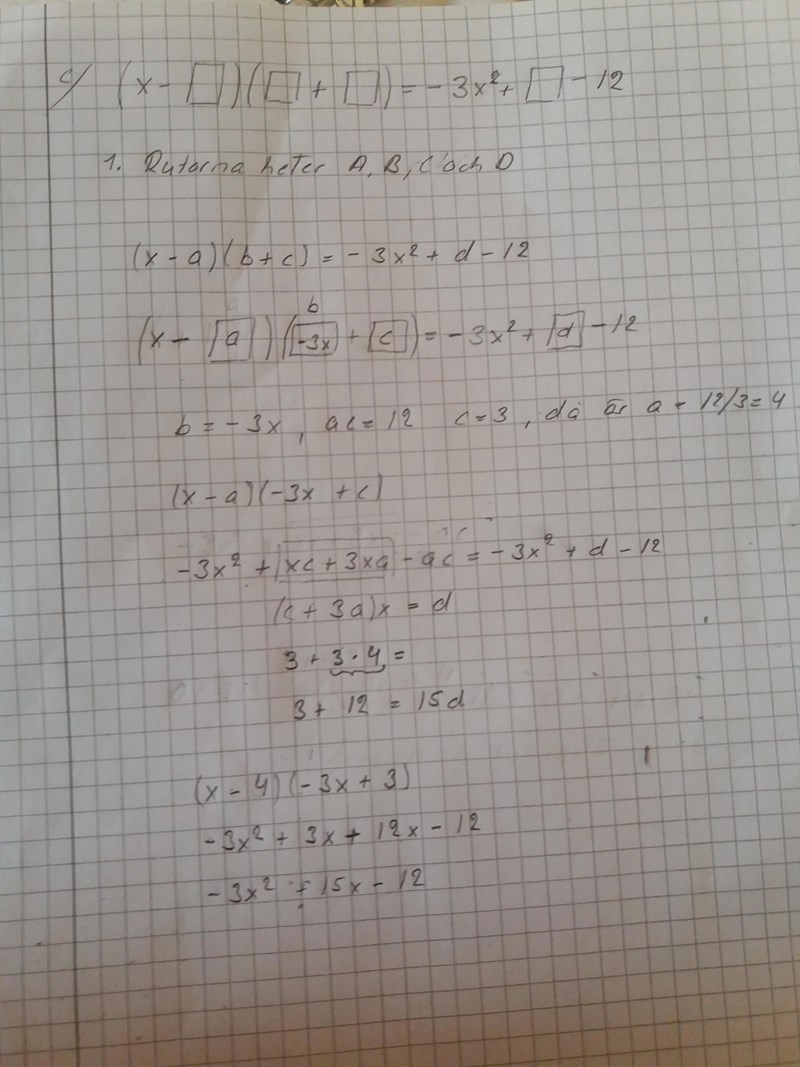 c/ (x - □)(□ + □) = - 3x² + □ - 12
1. Rutorna heter A, B, C och D
(x - a)(b + c) = - 3x² + d - 12
b
(x - a)(-3x + c) = - 3x² + d - 12
b = - 3x, ac = 12 c = 3, då är a = 12/3 = 4
(x - a)(-3x + c)
-3x² + xc + 3xa - ac = - 3x² + d - 12
(c + 3a)x = d
3 + 3 · 4 =
3 + 12 = 15d
(x - 4)(- 3x + 3)
- 3x² + 3x + 12x - 12
- 3x² + 15x - 12